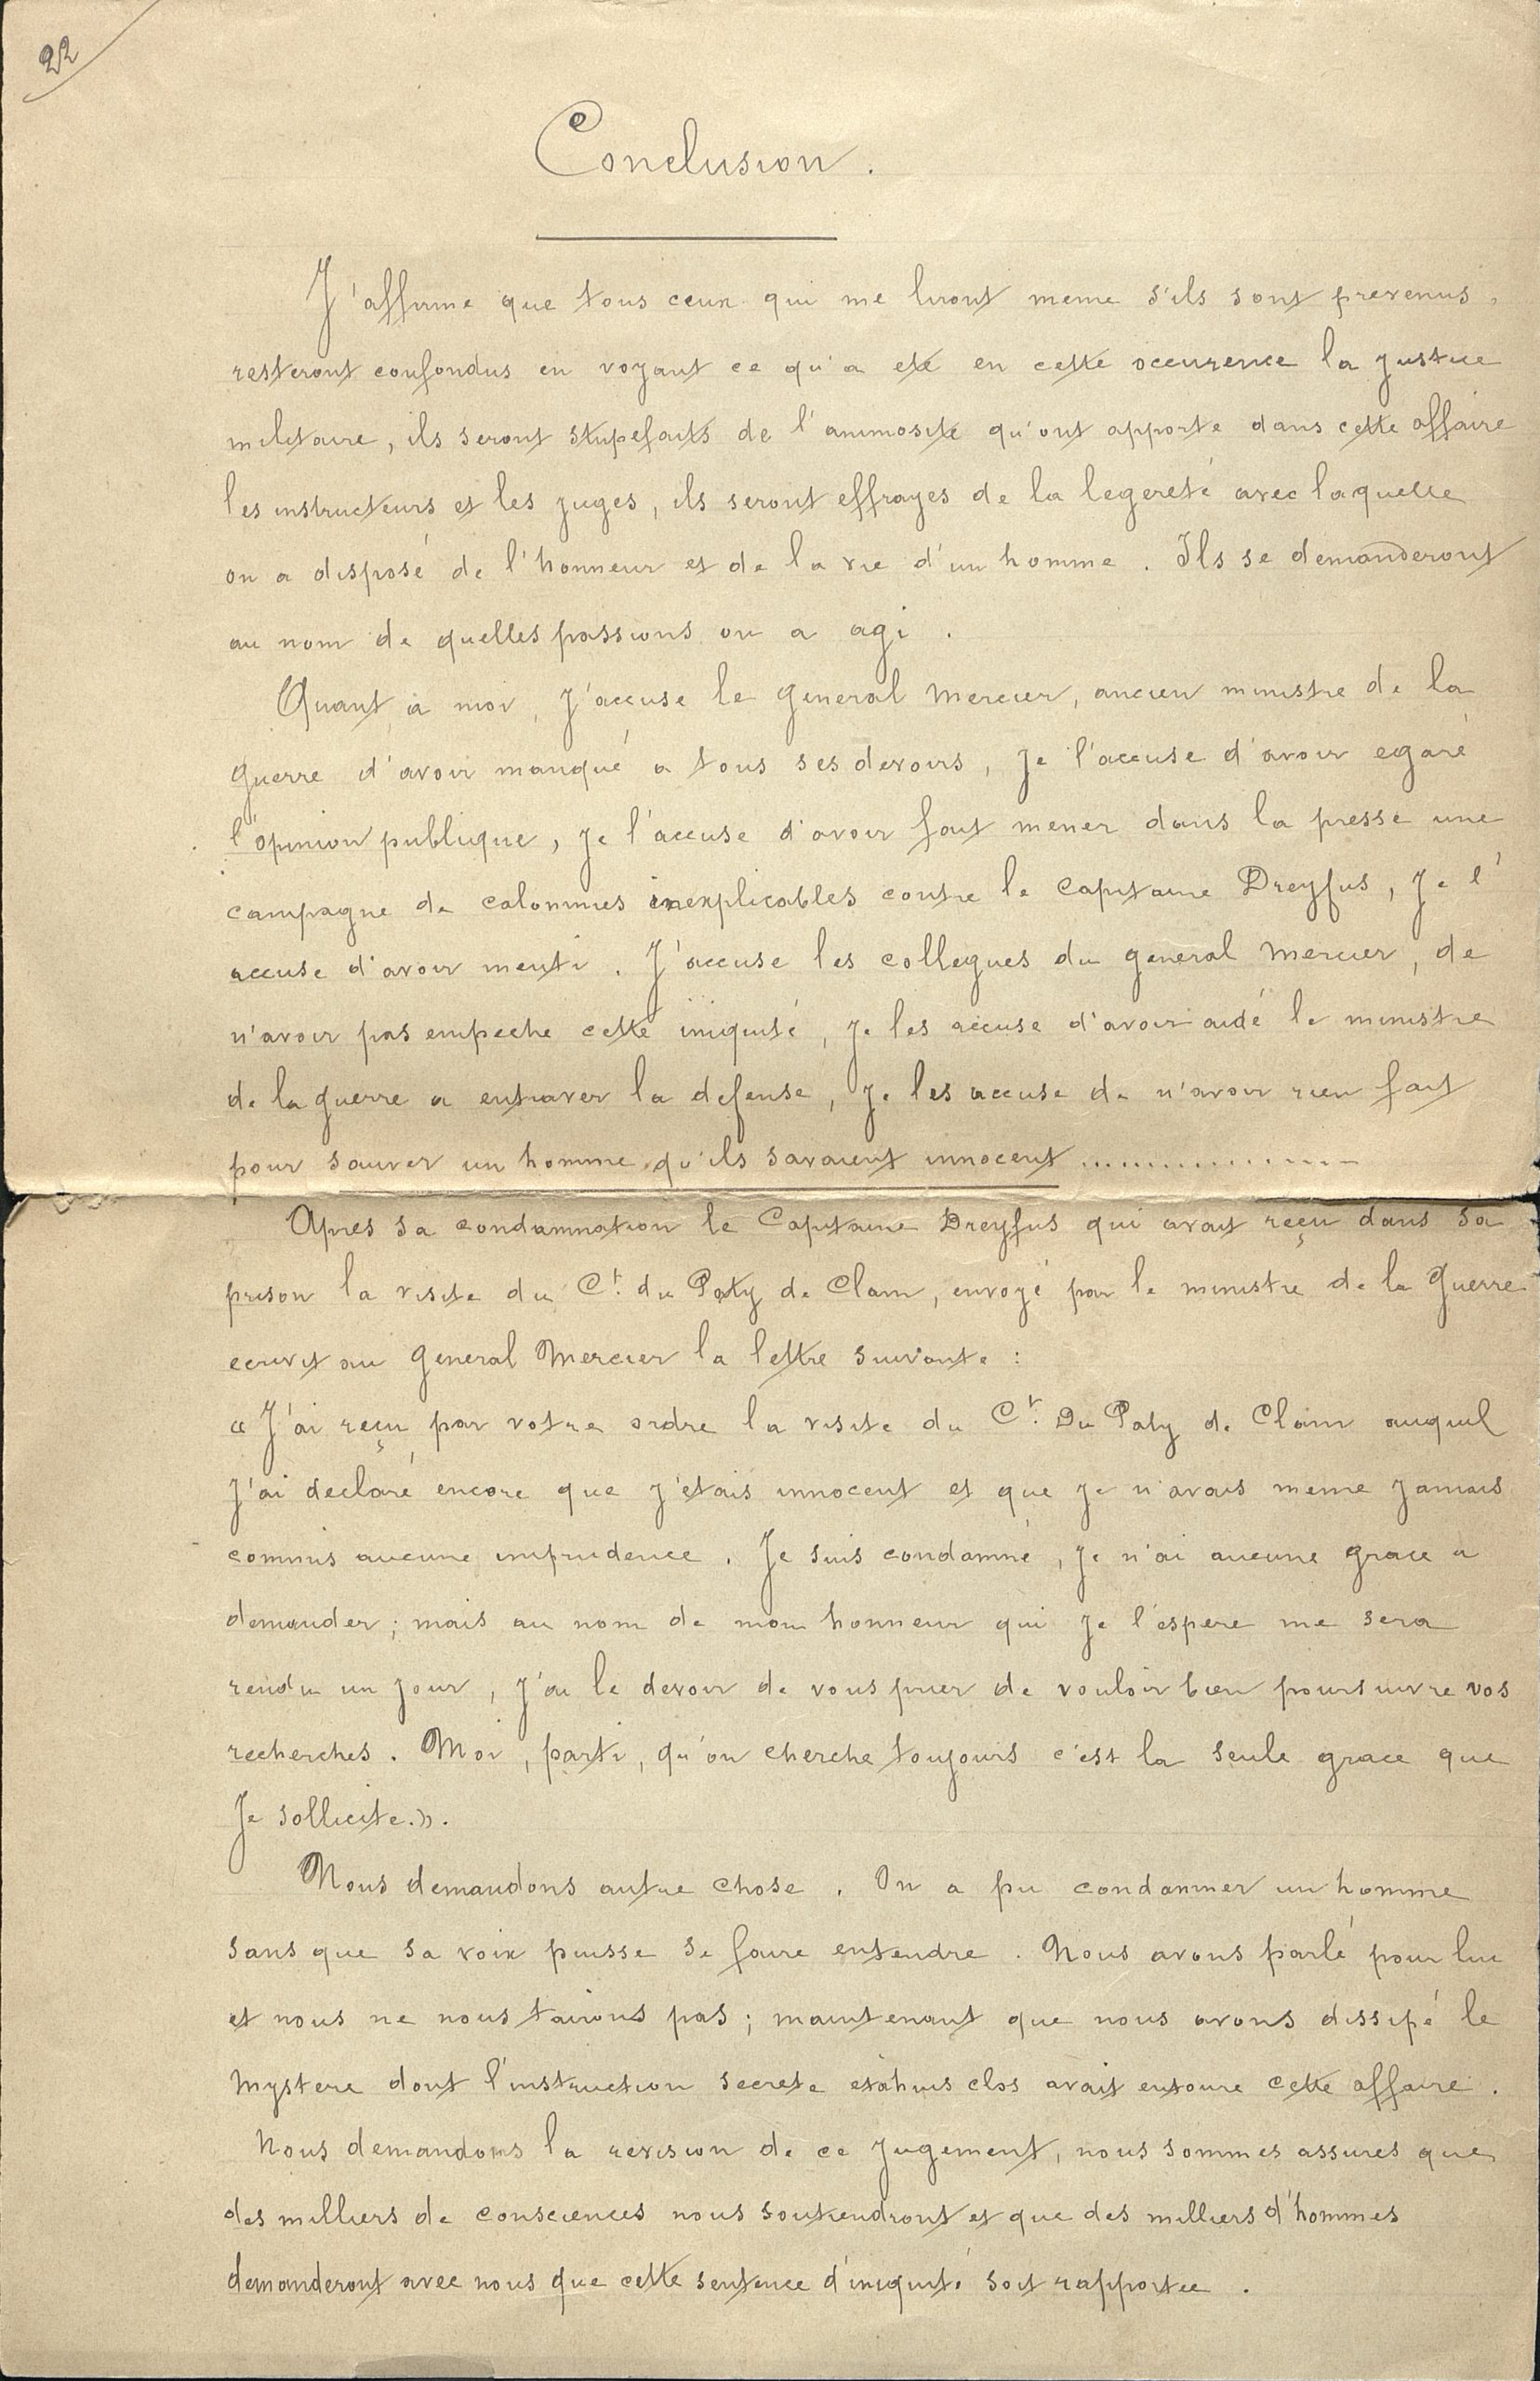 22
Conclusion.
J'affirme que tous ceux qui me liront meme s'ils sont prevenus,
resteront confondus en voyant ce qu'a eté en cette occurence la justice
militaire, ils seront stupefaits de l'animosité qu'ont apporte dans cette affaire
les instructeurs et les juges, ils seront effrayes de la legereté avec laquelle
on a disposé de l'honneur et de la vie d'un homme. Ils se demanderont
au nom de quelles passions on a agi.
Quant à moi, j'accuse le General Mercier, ancien ministre de la
Guerre d'avoir manqué a tous ses devoirs, je l'accuse d'avoir egaré
l'opinion publique, je l'accuse d'avoir fait mener dans la presse une
campagne de calomnies inexplicables contre le Capitaine Dreyfus, je l'
accuse d'avoir menti. J'accuse les collegues du general Mercier, de
n'avoir pas empeche cette iniquité, je les accuse d'avoir aidé le ministre
de la guerre a entraver la defense, je les accuse de n'avoir rien fait
pour sauver un homme qu'ils savaient innocent ..................
Apres sa condamnation le Capitaine Dreyfus qui avait reçu dans sa
prison la visite du Ct. du Paty de Clam, envoyé par le ministre de la Guerre
ecrivit au General Mercier la lettre suivante :
« J'ai reçu par votre ordre la visite du Ct. Du Paty de Clam auquel
j'ai declaré encore que j'étais innocent et que je n'avais meme jamais
commis aucune imprudence. Je suis condamné, je n'ai aucune grace a
demander; mais au nom de mon honneur qui je l'espere me sera
rendu un jour, j'ai le devoir de vous prier de vouloir bien poursuivre vos
recherches. Moi, parti, qu'on cherche toujours c'est la seule grace que
je sollicite.».
Nous demandons autre chose. On a pu condamner un homme
sans que sa voix puisse se faire entendre. Nous avons parlé pour lui
et nous ne nous tairons pas; maintenant que nous avons dissipé le
mystere dont l'instruction secrete et à huis clos avait entoure cette affaire.
Nous demandons la revision de ce jugement, nous sommes assures que
des milliers de consciences nous soutiendront et que des milliers d'hommes
demanderont avec nous que cette sentence d'iniquité soit rapportee.